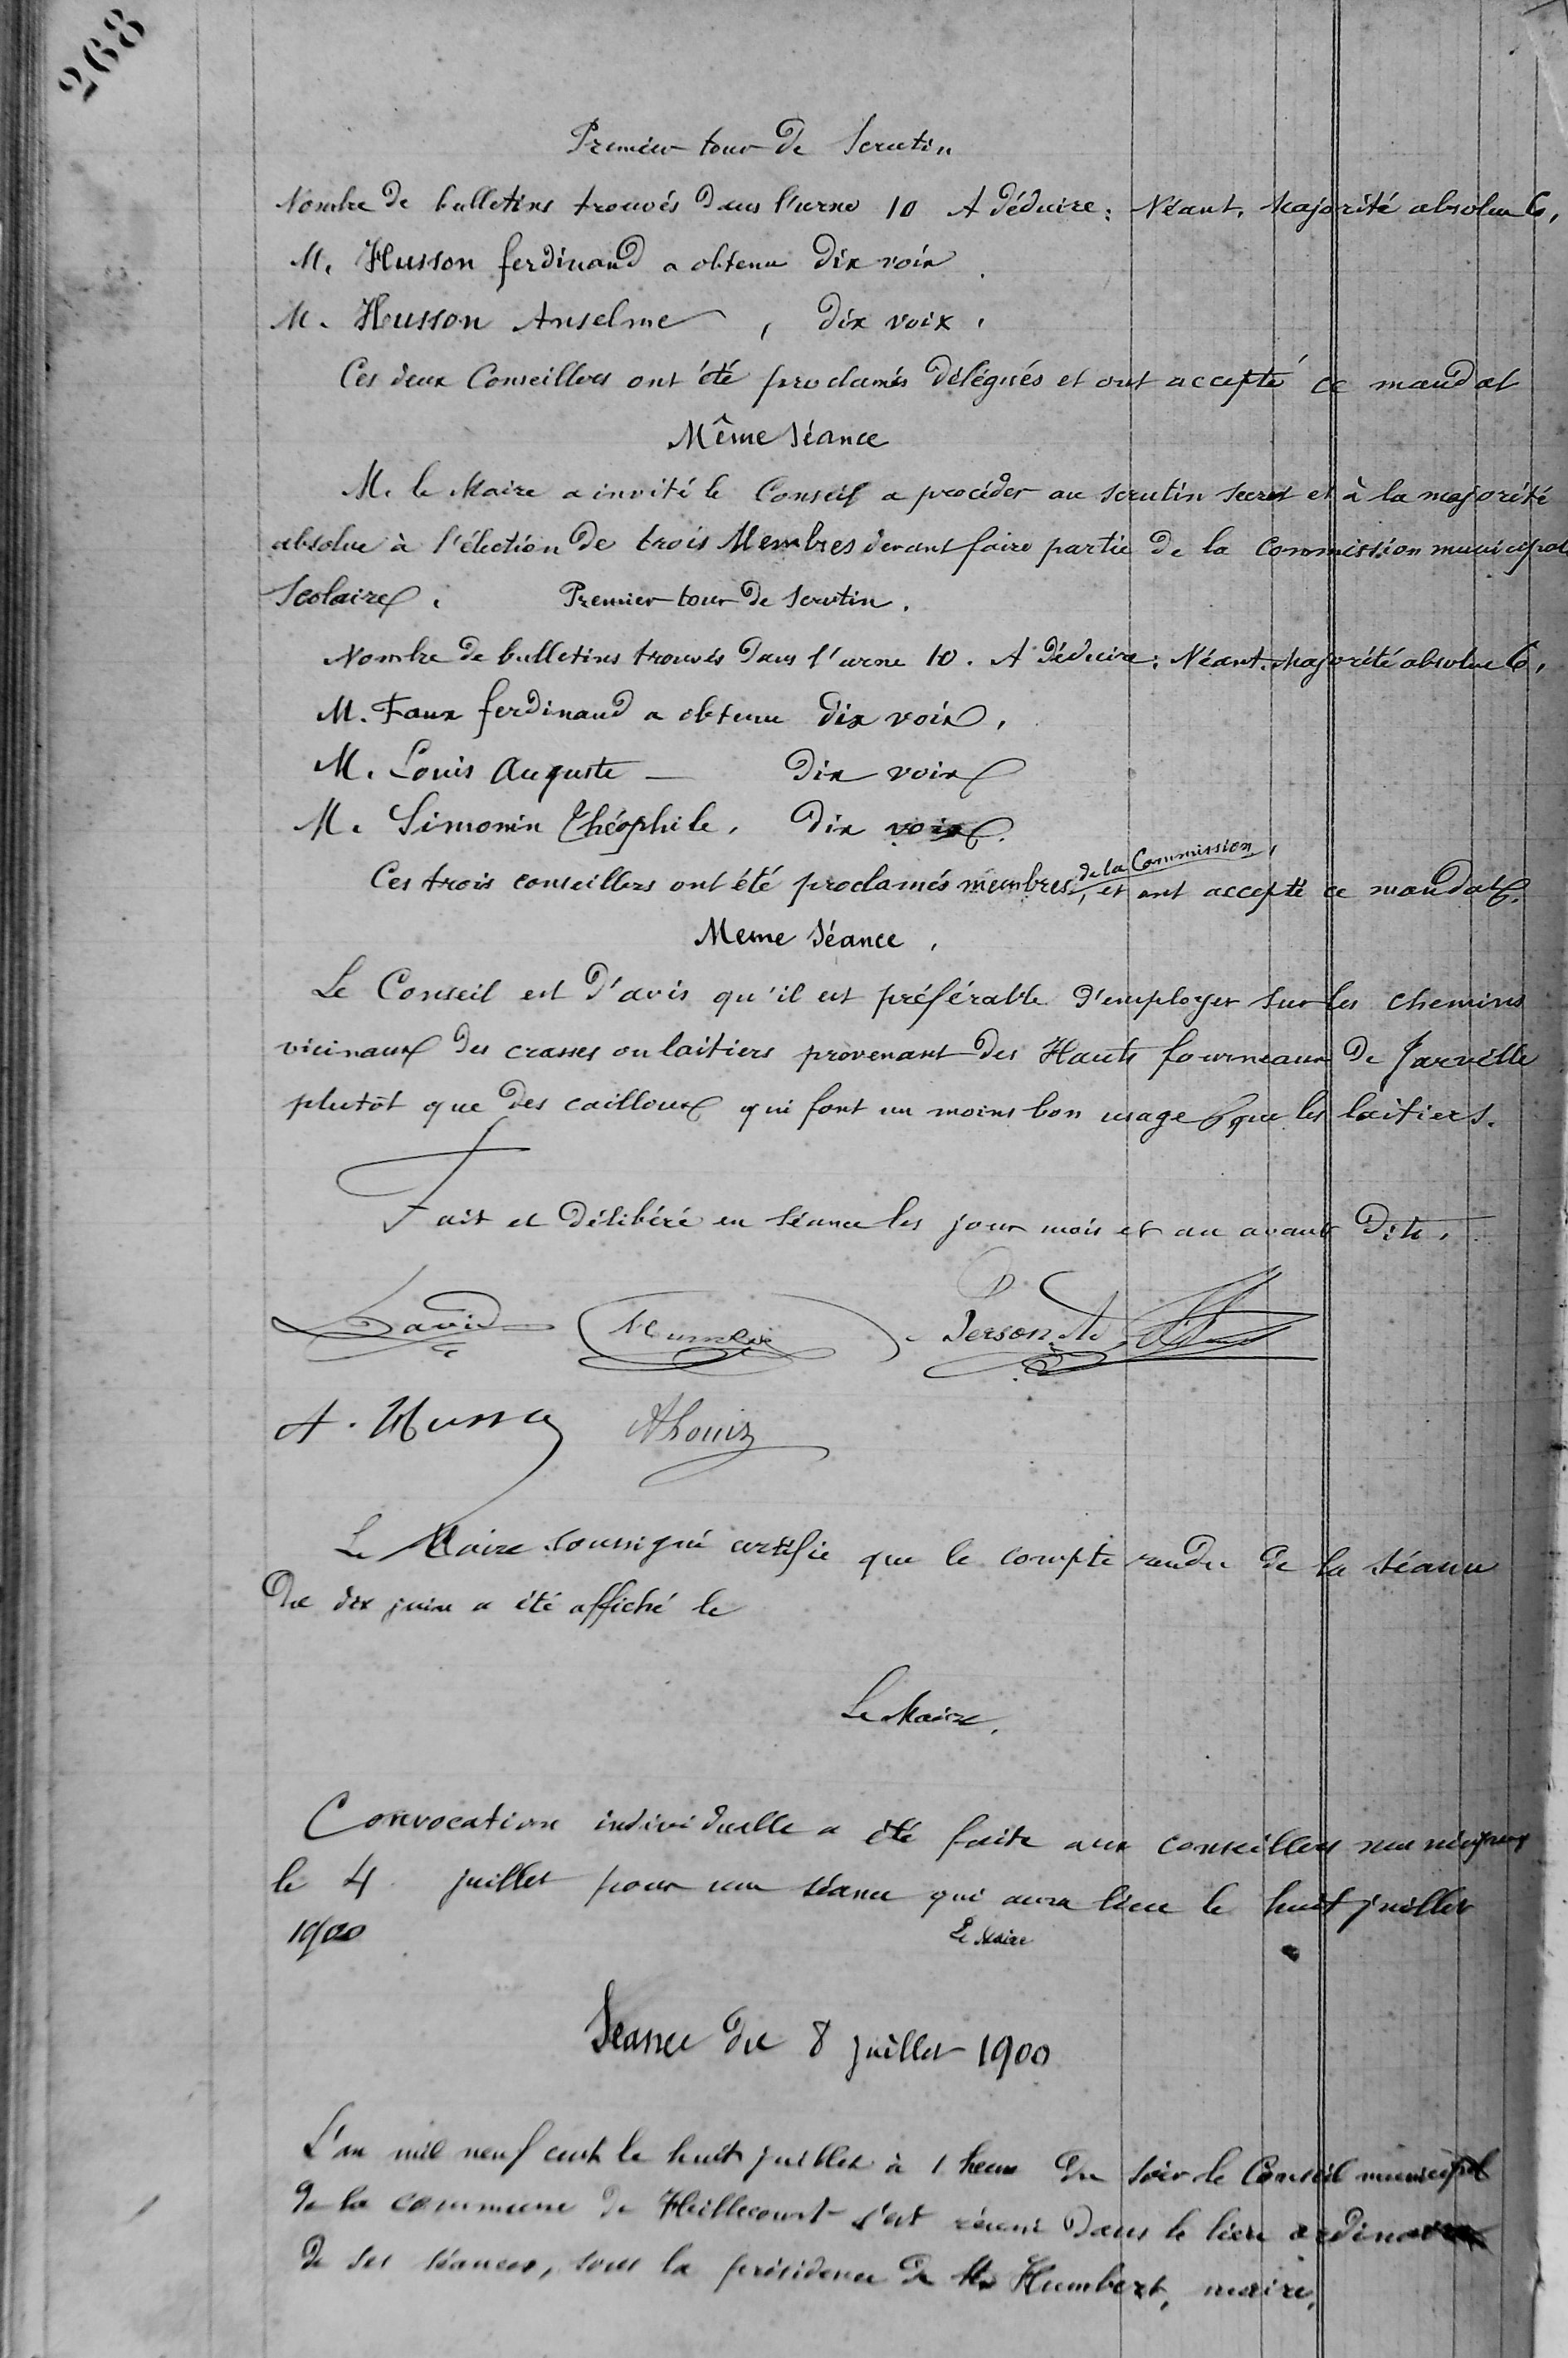 268
Premier tour de Scrutin
Nombre de bulletins trouvés dans l'urne 10 A déduire : Néant. Majorité absolue 6,
M. Husson ferdinand a obtenu dix voix
M. Husson Anselme , dix voix ,
Ces deux Conseillers ont été proclamés délégués et ont accepté ce mandat
Même Séance
M. le Maire a invité le Conseil a procéder au scrutin secret et à la majorité
absolue à l'élection de trois Membres devant faire partie de la Commission municipale
Scolaire. Premier tour de Scrutin.
Nombre de bulletins trouvés dans l'urne 10. A déduire : Néant. Majorité absolue 6,
M. Faux ferdinand a obtenu dix voix,
M. Louis Auguste — dix voix
M. Simonin Théophile, dix voix.
Ces trois conseillers ont été proclamés membres de la Commission, et ont accepté ce mandat.
Meme Séance,
Le Conseil est d'avis qu'il est préférable d'employer sur les chemins
vicinaux des crasses ou laitiers provenant des Hauts fourneaux de Jarville
plutôt que des cailloux qui font un moins bon usage que les laitiers.
Fait et délibéré en séance les jour mois et an avant dits.
David Person A.
A. Husson ALouis
Le Maire soussigné certifie que le compte rendu de la séance
du dix juin a été affiché le
Le Maire,
Convocation individuelle a été faite aux conseillers municipaux
le 4 juillet pour une séance qui aura lieu le huit juillet
1900 Le Maire
Séance du 8 juillet 1900
L'an mil neuf cent le huit juillet à 1 heure du soir le Conseil municipal
de la commune de Heillecourt s'est réuni dans le lieu ordinaire
de ses séances, sous la présidence de Mr Humbert, maire,